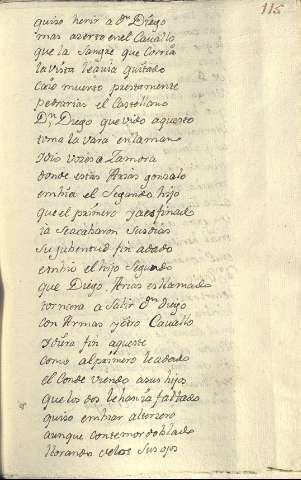 115
quiso herir a Dn Diego
mas azerto en el Cauallo
que la Sangre que Corria
la vista le auia quitado
Caio muerto prestamente
pedrarias el Castellano
Dn Diego que vido aquesto
toma la vara en la mano
Dio vozes a Zamora
donde estas Arias gonzalo
embia el Segundo hijo
que el primero ya es finado
ia Seacabaron Sus dias
Su jubentud fin a dado
embio el hijo Segundo
que Diego Arias es llamado
tornera a Salir Dn Diego
con Armas y otro Cauallo
Diera fin aqueste
como al primero le a dado
el Conde viendo a sus hijos
que los dos le han ia faltado
quiso embiar al terzero
aunque con temor doblado
llorando de los Sus ojos